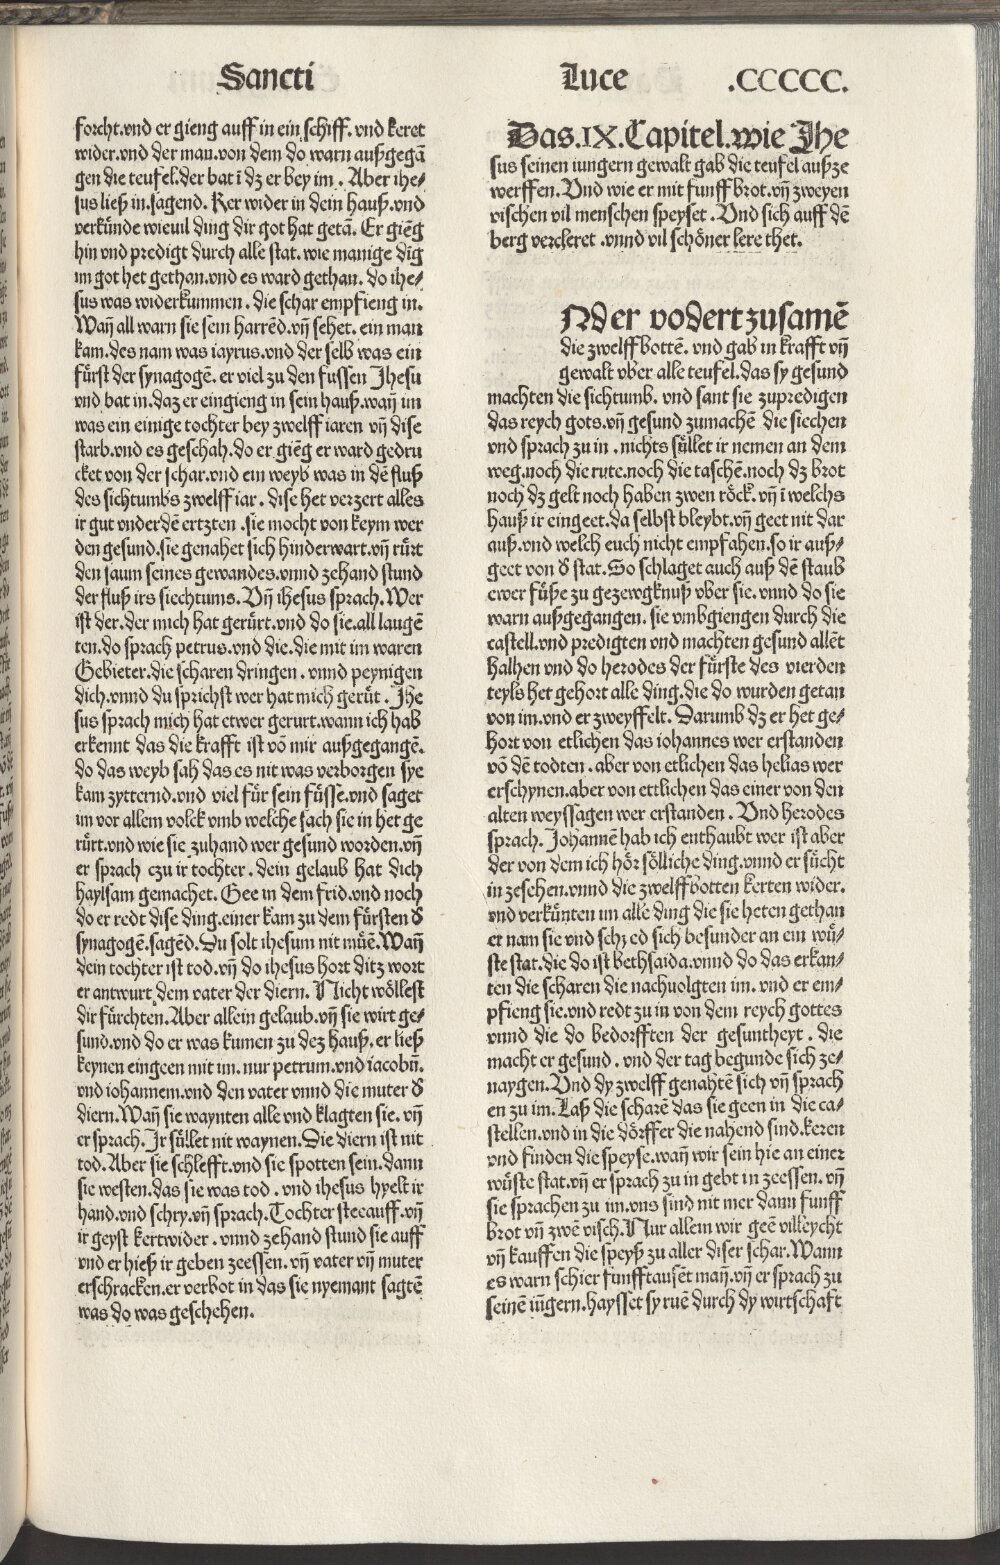 Sancti
Luce .CCCCC.
forcht.vnd er gieng auff in ein schiff. vnd keret
wider.vnd der man.von dem do warn außgegā
gen die teufel.der bat ī dz er bey im. Aber ihe⸗
sus ließ in.sagend. Ker wider in dein hauß.vnd
verkünde wieuil ding dir got hat getā. Er giēg
hin vnd predigt durch alle stat. wie manige dīg
im got het gethan.vnd es ward gethan. do ihe⸗
sus was widerkummen. die schar empfieng in.
Wañ all warn sie sein harrēd.vñ sehet. ein man
kam.des nam was iayrus.vnd der selb was ein
fürst der synagogē. er viel zu den fussen Jhesu
vnd bat in.daz er eingieng in sein hauß.wañ im
was ein einige tochter bey zwelff iaren vñ dise
starb.vnd es geschah.do er giēg er ward gedru
cket von der schar.vnd ein weyb was in dē fluß
des sichtumbs zwelff iar. dise het verzert alles
ir gut vnderdē ertzten.sie mocht von keym wer
den gesund.sie genahet sich hinderwart.vñ rürt
den saum seines gewandes.vnnd zehand stund
der fluß irs siechtums. Vñ ihesus sprach. Wer
ist der.der mich hat gerürt.vnd do sie.all laugē
ten.do sprach petrus.vnd die.die mit im waren
Gebieter.die scharen dringen. vnnd peynigen
dich.vnnd du sprichst wer hat mich gerüt. Jhe
sus sprach mich hat etwer gerurt.wann ich hab
erkennt das die krafft ist vō mir außgegangē.
do das weyb sah das es nit was verborgen sye
kam zytternd.vnd viel für sein füsse.vnd saget
im vor allem volck vmb welche sach sie in het ge
rürt.vnd wie sie zuhand wer gesund worden.vñ
er sprach czu ir tochter. dein gelaub hat dich
haylsam gemachet. Gee in dem frid.vnd noch
do er redt dise ding.einer kam zu dem fürsten ð
synagogē.sagēd.Du solt ihesum nit müē.Wañ
dein tochter ist tod.vñ do ihesus hort ditz wort
er antwurt dem vater der diern. Nicht wöllest
dir fürchten.Aber allein gelaub.vñ sie wirt ge⸗
sund.vnd do er was kumen zu dez hauß. er ließ
keynen eingeen mit im. nur petrum.vnd iacobū.
vnd iohannem.vnd den vater vnnd die muter ð
diern.Wañ sie waynten alle vnd klagten sie. vñ
er sprach. Jr süllet nit waynen.Die diern ist nit
tod.Aber sie schlefft.vnd sie spotten sein.dann
sie westen.das sie was tod. vnd ihesus hyelt ir
hand.vnd schry.vñ sprach.Tochter steeauff.vñ
ir geyst kertwider. vnnd zehand stund sie auff
vnd er hieß ir geben zeessen. vñ vater vñ muter
erschracken.er verbot in das sie nyemant sagtē
was do was geschehen.
Das.IX.Capitel.wie Jhe
sus seinen iungern gewalt gab die teufel außze
werffen.Vnd wie er mit funff brot.vñ zweyen
vischen vil menschen speyset. Vnd sich auff dē
berg verckeret.vnnd vil schöner lere thet.
Nder vodert zusamē
die zwelffbottē. vnd gab in krafft vñ
gewalt vber alle teufel.das sy gesund
machten die sichtumb. vnd sant sie zupredigen
das reych gots.vñ gesund zumachē die siechen
vnd sprach zu in. nichts süllet ir nemen an dem
weg.noch die rute.noch die taschē.noch dz brot
noch dz gelt noch haben zwen röck.vñ ī welchs
hauß ir eingeet.da selbst bleybt.vñ geet nit dar
auß.vnd welch euch nicht empfahen.so ir auß⸗
geet von ð stat.So schlaget auch auß dē staub
ewer füße zu gezewgknuß vber sie.vnnd do sie
warn außgegangen. sie vmbgiengen durch die
castell.vnd predigten vnd machten gesund allēt
halhen vnd do herodes der fürste des vierden
teyls het gehort alle ding.die do wurden getan
von im.vnd er zweyffelt. Darumb dz er het ge⸗
hort von etlichen das iohannes wer erstanden
vō dē todten. aber von etlichen das helias wer
erschynen.aber von ettlichen das einer von den
alten weyssagen wer erstanden. Vnd herodes
sprach. Johannē hab ich enthaubt wer ist aber
der von dem ich hör sölliche ding.vnnd er sücht
in zesehen.vnnd die zwelffbotten kerten wider.
vnd verkünten im alle ding die sie heten gethan
er nam sie vnd sch ed sich besunder an ein wü⸗
ste stat.die do ist bethsaida.vnnd do das erkan⸗
ten die scharen die nachuolgten im. vnd er em⸗
pfieng sie.vnd redt zu in von dem reych gottes
vnnd die do bedorfften der gesuntheyt. die
macht er gesund. vnd der tag begunde sich ze⸗
naygen.Vnd dy zwelff genahtē sich vñ sprach
en zu im.Laß die scharē das sie geen in die ca⸗
stellen.vnd in die dörffer die nahend sind.keren
vnd finden die speyse.wañ wir sein hie an einer
wüste stat.vñ er sprach zu in gebt in zeessen. vñ
sie sprachen zu im.vns sind nit mer dann funff
brot vñ zwē visch.Nur allein wir geē villeycht
vñ kauffen die speyß zu aller diser schar.Wann
es warn schier funfftausēt mañ.vñ er sprach zu
seinē iūgern.haysset sy ruē durch dy wirtschaft